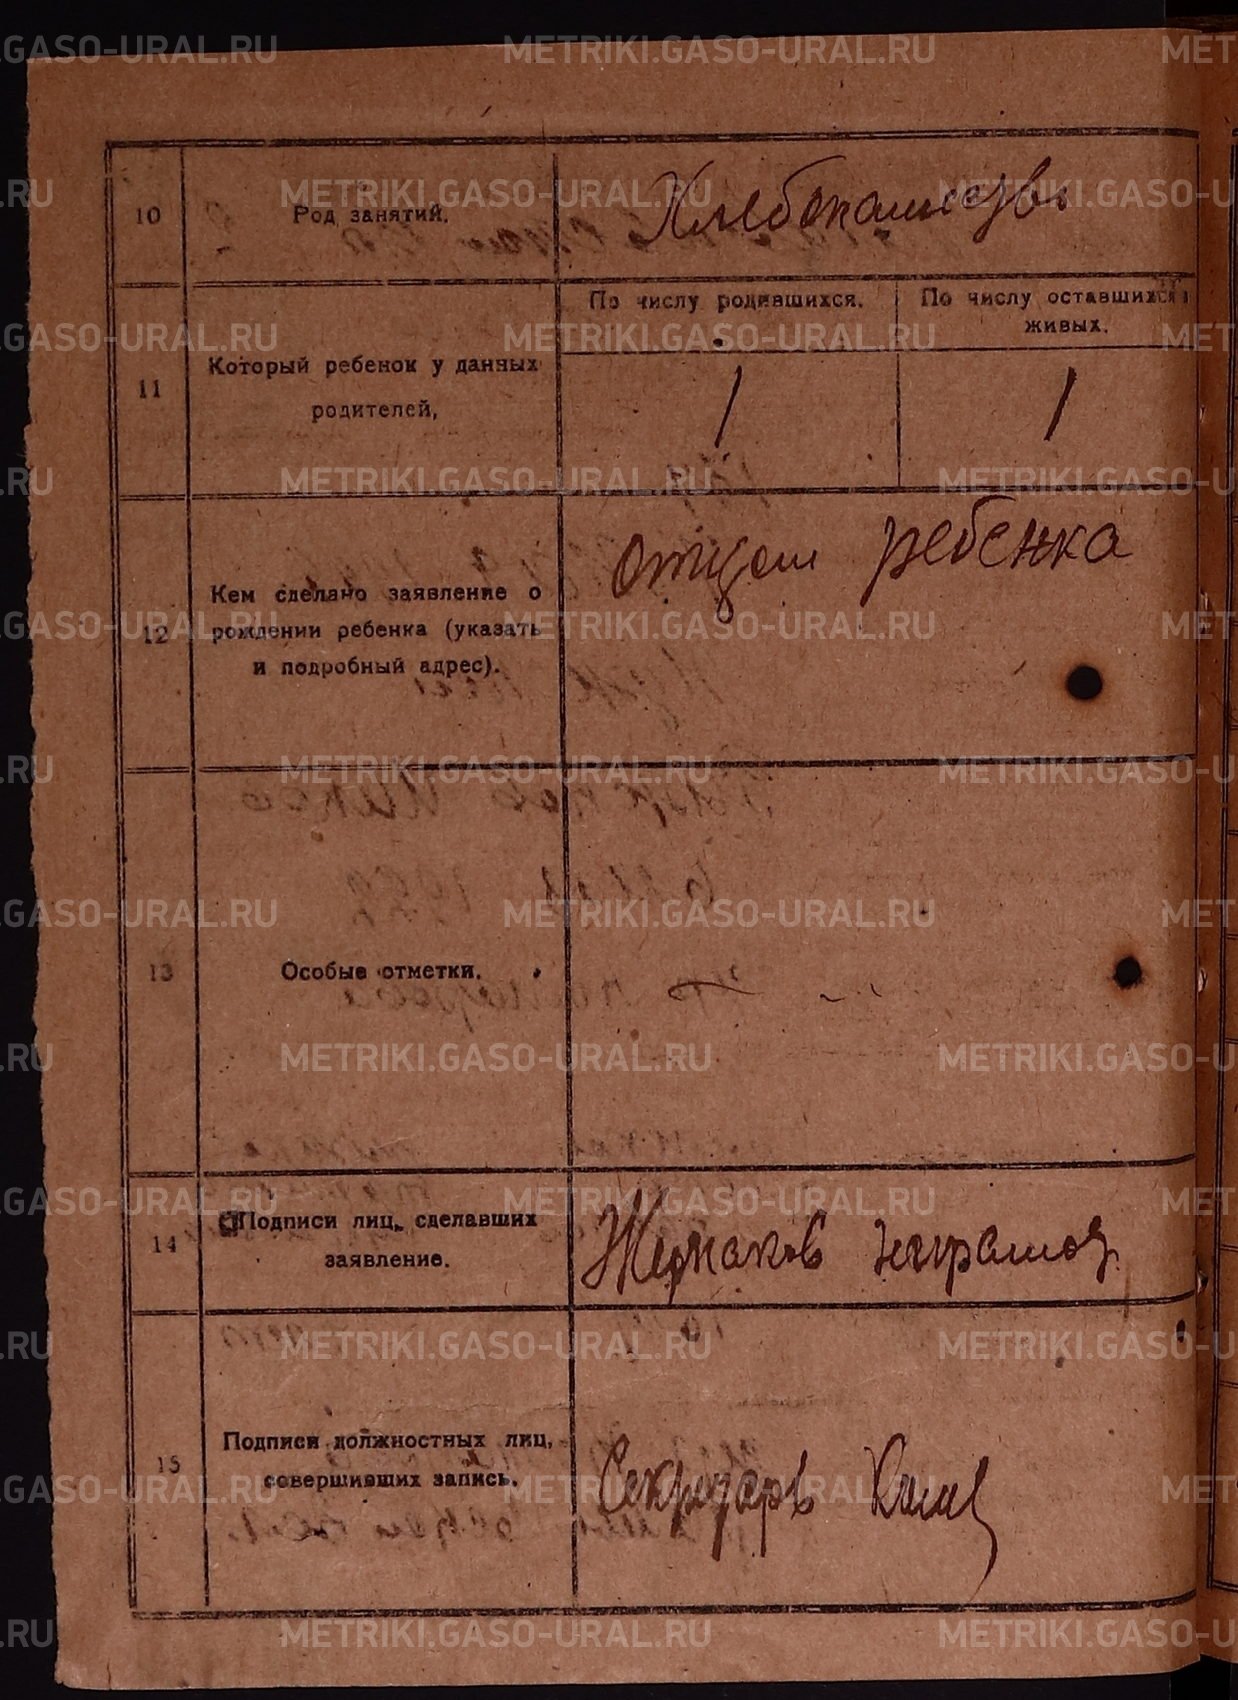 METRIKI.GASO-URAL.RU
10
Род занятий.
11
Который ребенок у данных
родителей,
По числу родившихся.
По числу оставшихся
живых.
1
1
12
Кем сделано заявление о
рождении ребенка (указать
и подробный адрес).
отцом ребенка
13
Особые отметки.
14
Подписи лиц, сделавших
заявление.
15
Подписи должностных лиц,
совершивших запись.
Секретарь